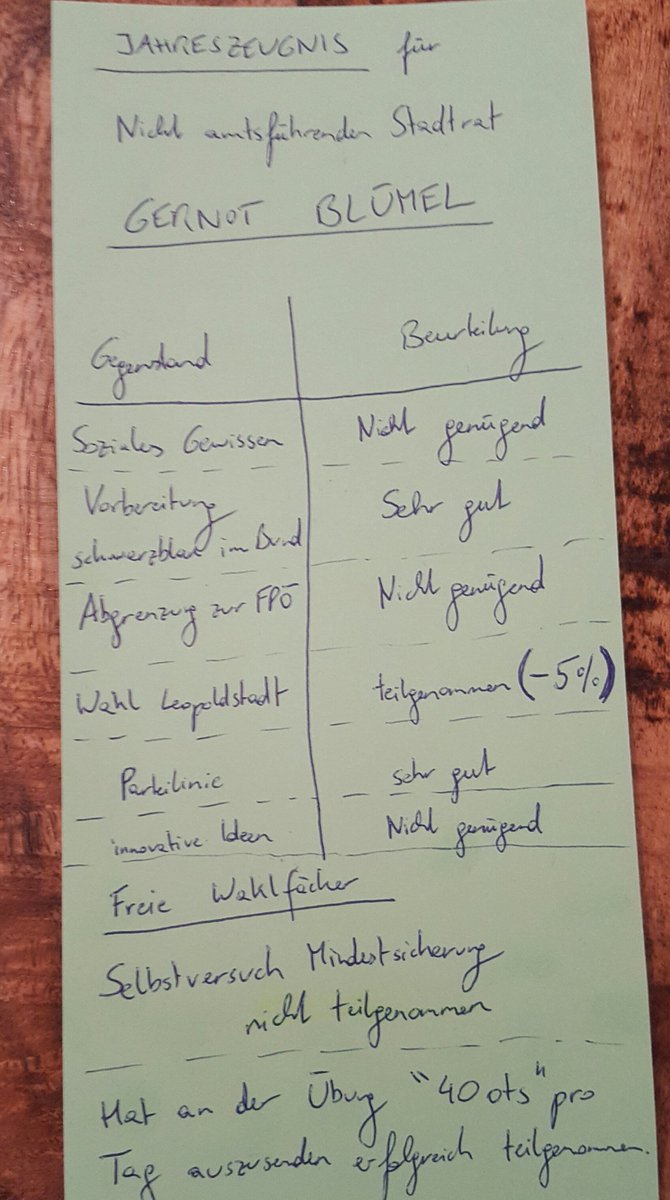 JAHRESZEUGNIS für
Nicht amtsführenden Stadtrat
GERNOT BLÜMEL
Gegenstand Beurteilung
Soziales Gewissen Nicht genügend
Vorbereitung
schwarzblau im Bund Sehr gut
Abgrenzung zur FPÖ Nicht genügend
Wahl Leopoldstadt teilgenommen (-5%)
Parteilinie sehr gut
innovative Ideen Nicht genügend
Freie Wahlfächer
Selbstversuch Mindestsicherung
nicht teilgenommen
Hat an der Übung "40 ots" pro
Tag auszusenden erfolgreich teilgenommen.